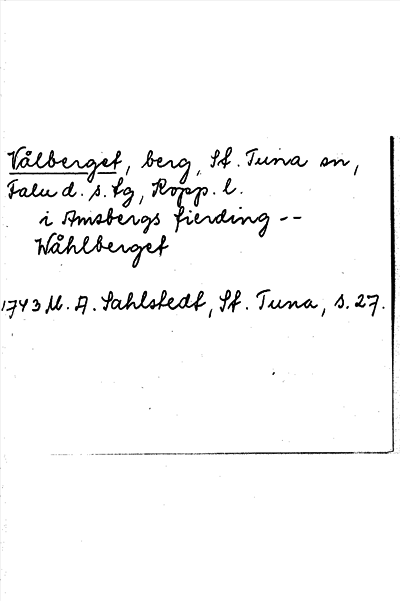 Vålberget, berg, St. Tuna sn,
Falu d. s. tg, Kopp. l.
i Amsbergs fierding --
Wåhlberget
1743 M. A. Sahlstedt, St. Tuna, s. 27.